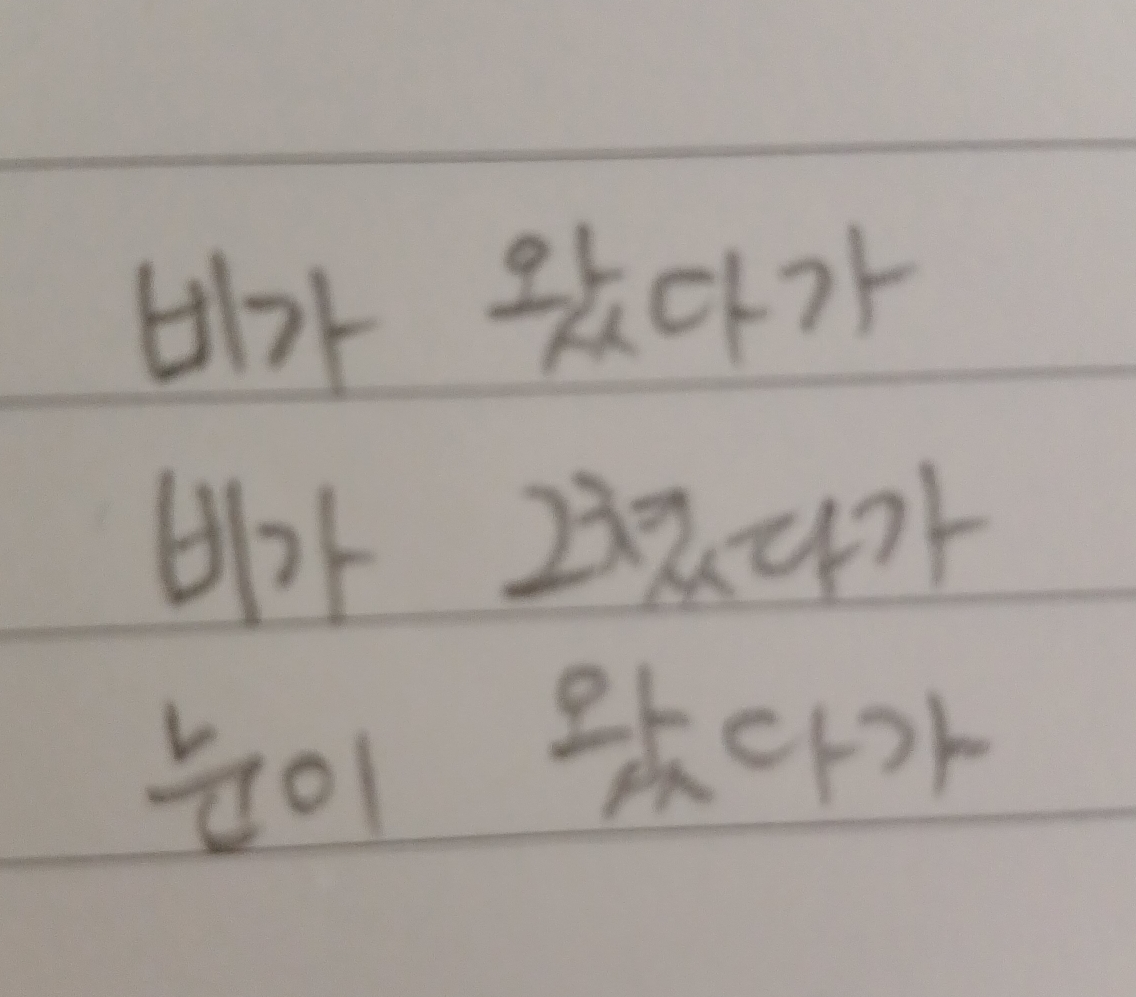 비가 왔다가
비가 그쳤다가
눈이 왔다가